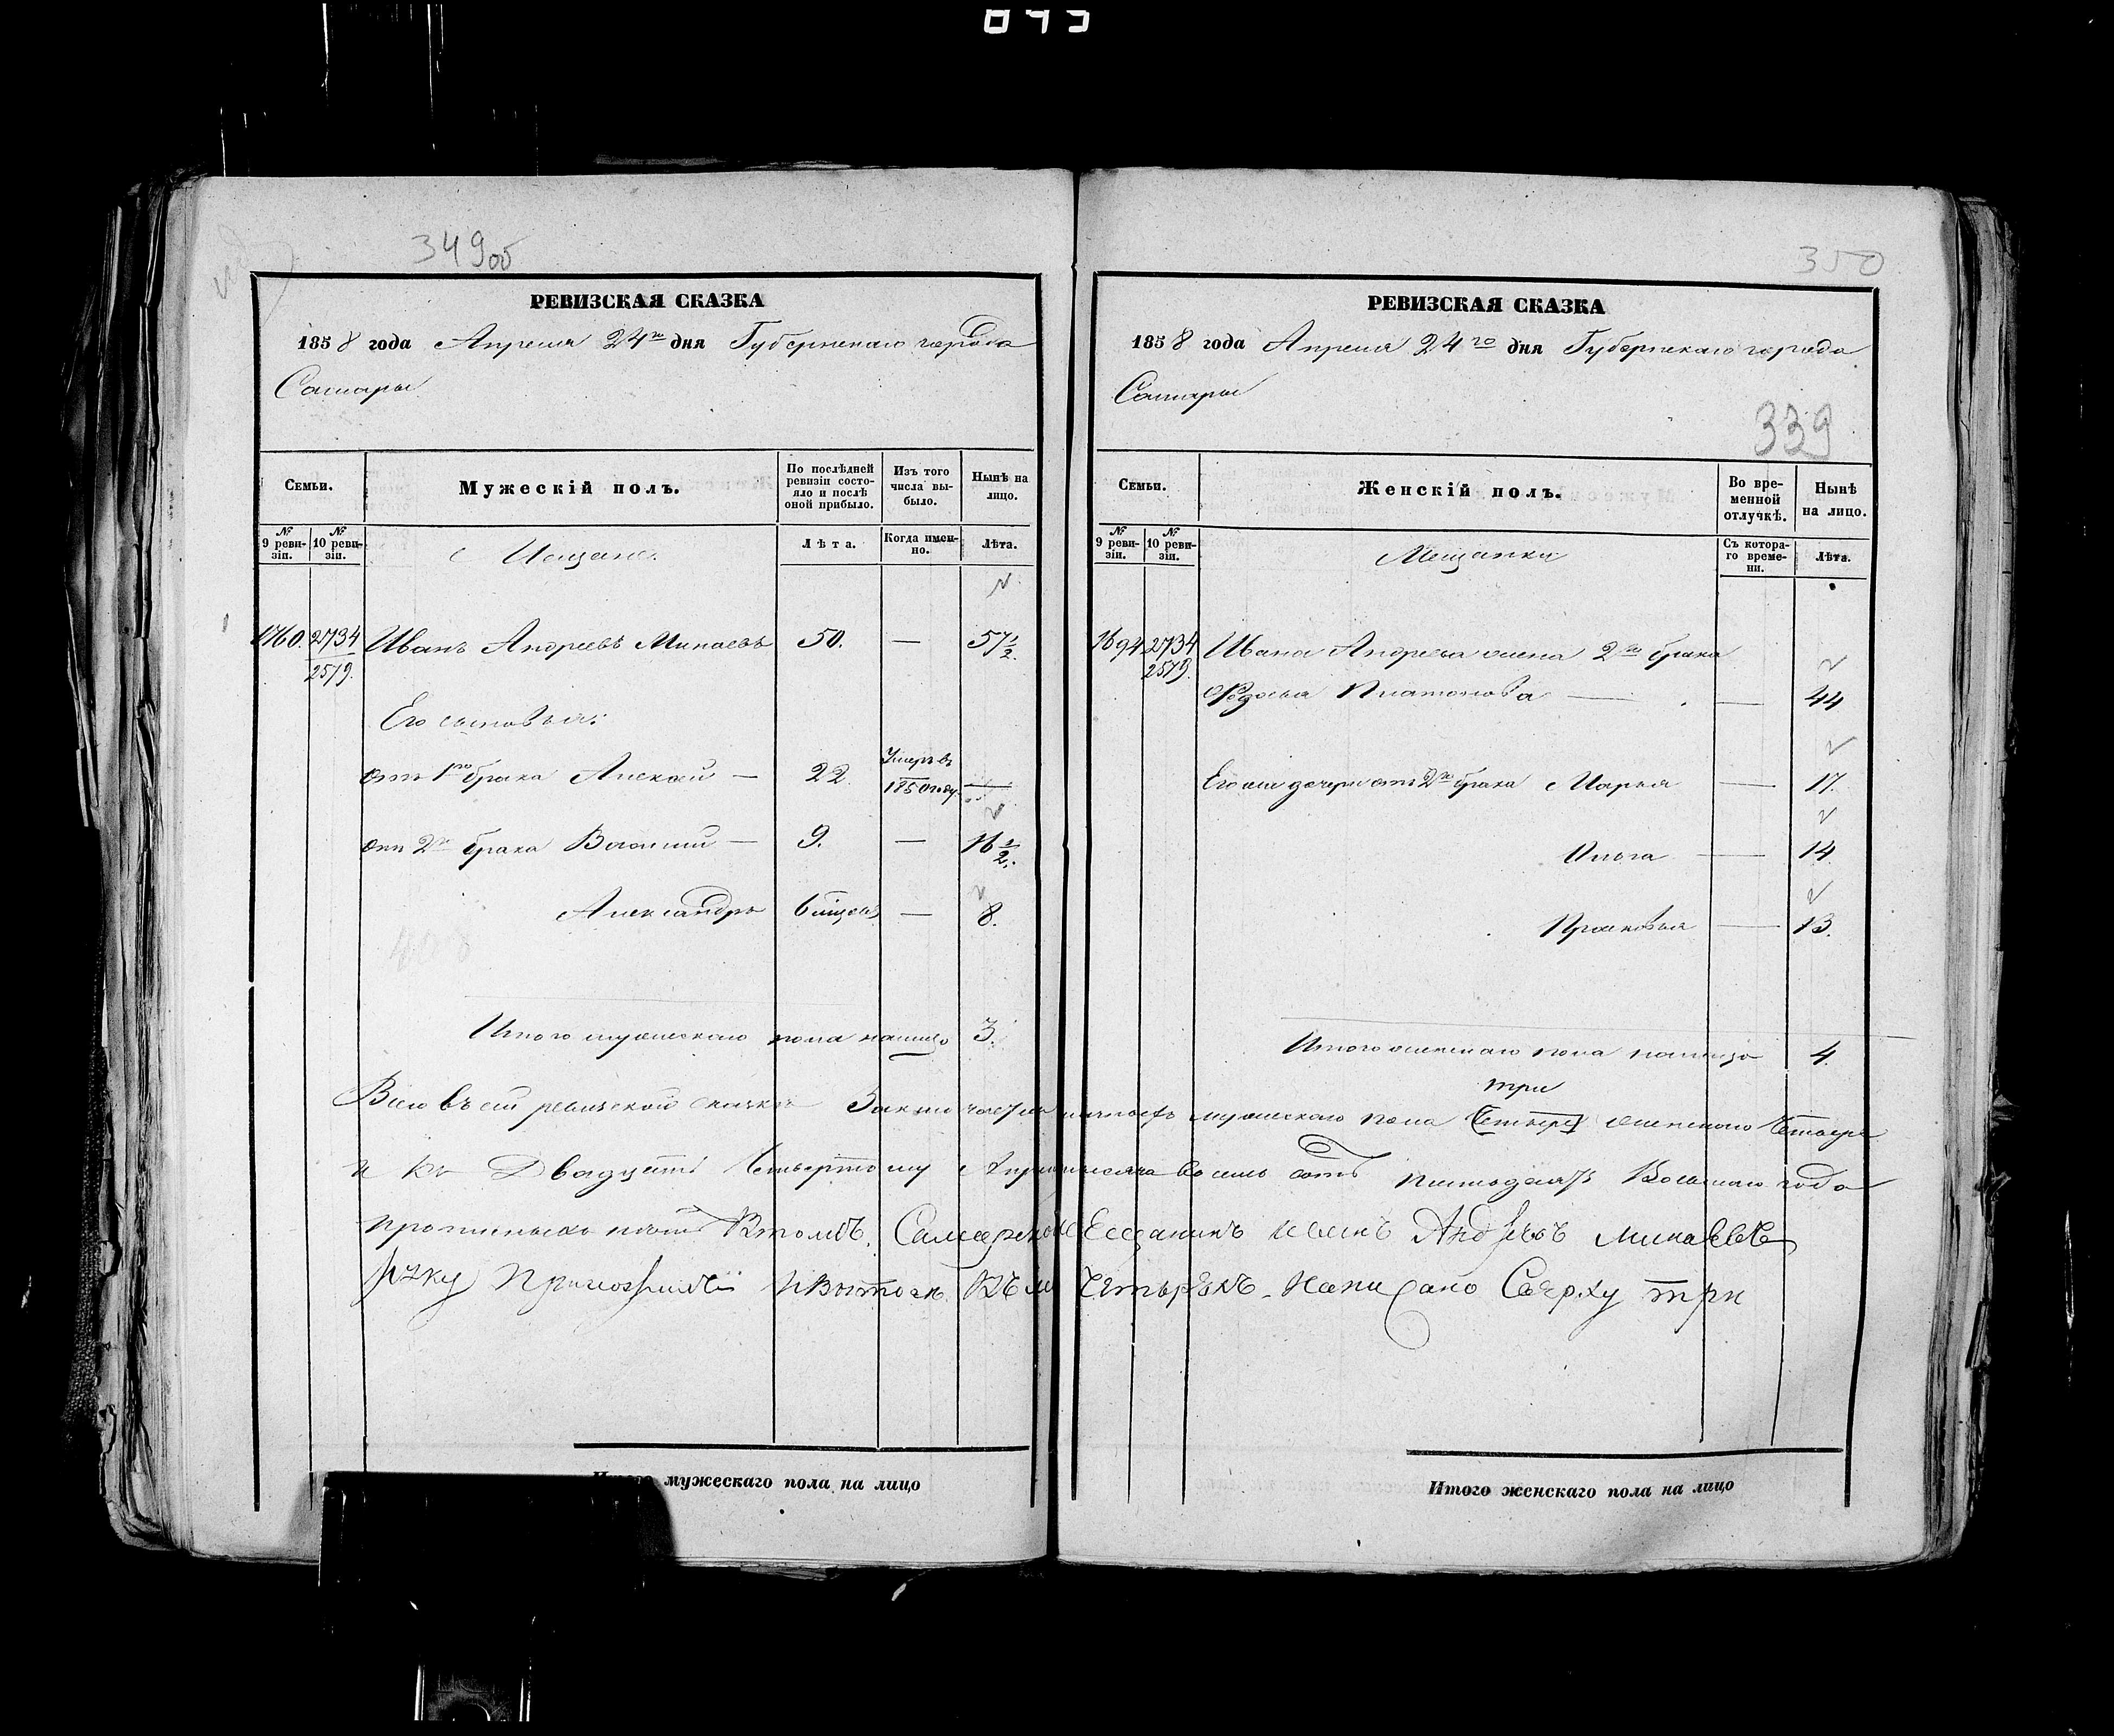 349 об
РЕВИЗСКАЯ СКАЗКА
1858 года Апреля 24го дня Губернскаго города
Самары
Семьи.
Мужескій полъ.
По послѣдней ревизіи состояло и послѣ оной прибыло.
Изъ того числа выбыло.
Нынѣ на лицо.
№ 9 ревизіи.
№ 10 ревизіи.
Мещане.
Лѣта.
Когда именно.
Лѣта.
1760. 2734 Иванъ Андреевъ Минаевъ 50. — 57½.
2579.
Его сыновья:
отъ 1го брака Алексѣй — 22. Умеръ въ 1850 году —
отъ 2го брака Василий — 9. — 16½.
Александръ 6 месяцъ — 8.
Итого мужескаго пола налицо 3.
350
РЕВИЗСКАЯ СКАЗКА
1858 года Апреля 24го дня Губернскаго города
Самары
339
Семьи.
Женскій полъ.
Во временной отлучкѣ.
Нынѣ на лицо.
№ 9 ревизіи.
№ 10 ревизіи.
Мещанки
Съ котораго времени.
Лѣта.
1694 2734 Ивана Андреева жена 2го брака
2579. Платонова — — 44
Его же дочери отъ 2го брака Марья — 17.
Ольга — 14
Прасковья — 13.
Итого женскаго пола налицо 4.
три
Всего въ сей ревизской сказке заключается мужескаго пола [четыре] женскаго четыре
и къ Двадцать Четвертому Апреля восемь сотъ пятьдесятъ Восьмаго года
Въ томъ Самарской Мещанинъ Иванъ Андреевъ Минаевъ
руку приложилъ четырехъ написано Сверху три
Итого мужескаго пола на лицо
Итого женскаго пола на лицо